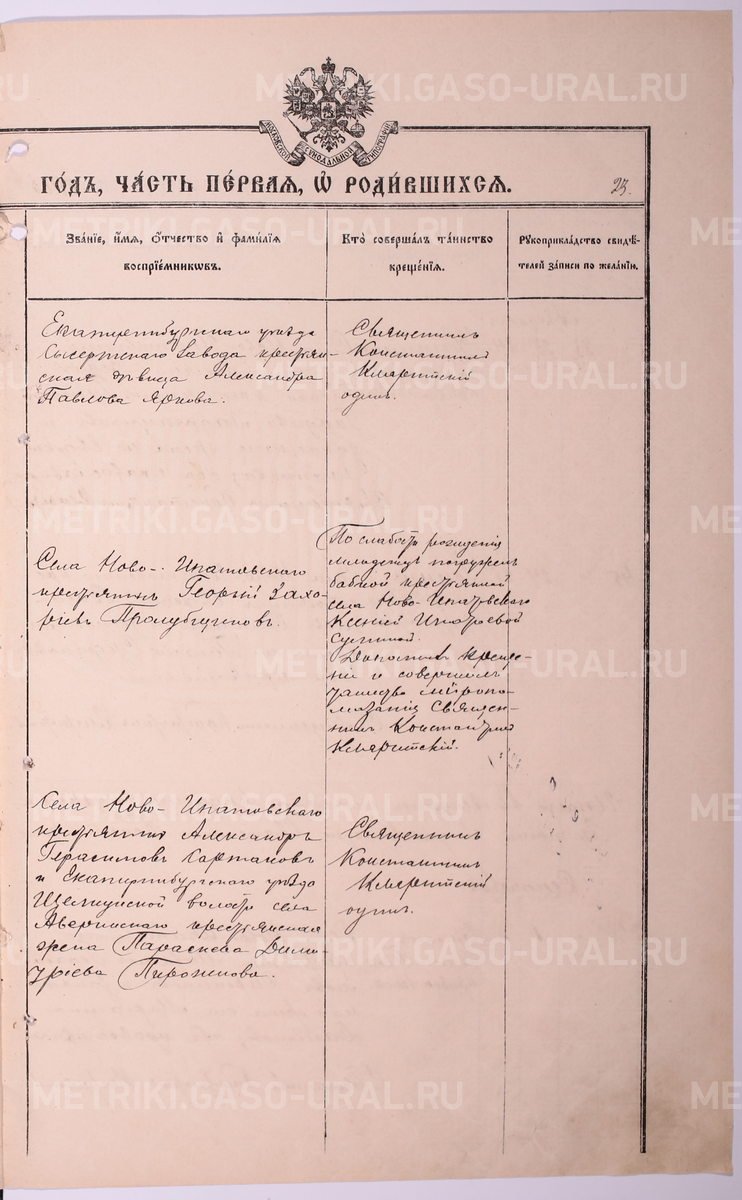 METRIKI.GASO-URAL.RU
МОСКОВСКОЙ СѴНОДАЛЬНОЙ ТИПОГРАФІИ
ГО́ДЪ, ЧА́СТЬ ПЕ́РВАЯ, Ѡ҆ РОДИ́ВШИХСЯ.
23.
Зва́ніе, и҆́мя, ѻ҆́тчество и҆ фами́лія
воспріе́мникѡвъ.
Кто̀ соверша́лъ та́инство
креще́нія.
Рукоприкла́дство свидѣ́-
телей за́писи по жела́нію.
Екатеринбургскаго уѣзда
Сысертскаго завода крестьян-
ская дѣвица Александра
Павлова Яркова.
Священникъ
Константинъ
одинъ.
Села Ново-Ипатовскаго
крестьянинъ Георгій Заха-
ріевъ
По слабости рожденія
младенецъ погруженъ
бабкой крестьянкой
села Ново-Ипатовскаго
Ксеніей
Дополнилъ креще-
ніе и совершилъ
таинство мѵропо-
мазанія священ-
никъ Константинъ
Села Ново-Ипатовскаго
крестьянинъ Александръ
Герасимовъ
и Екатеринбургскаго уѣзда
Щелкунской волости села
Аверинскаго крестьянская
жена Параскева Дими-
тріева Пирожкова.
Священникъ
Константинъ
одинъ.